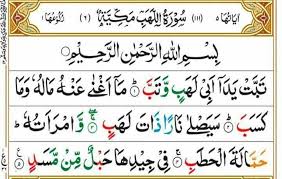 اٰيَاتُهَا ٥ (١١١) سُوْرَةُ اللَّهَبِ مَكِّيَّةٌ (٦) رُكُوْعُهَا ١
بِسْمِ اللهِ الرَّحْمٰنِ الرَّحِيْمِ
تَبَّتْ يَدَآ اَبِيْ لَهَبٍ وَّتَبَّ ۝ مَآ اَغْنٰى عَنْهُ مَالُهٗ وَمَا
كَسَبَ ۝ سَيَصْلٰى نَارًا ذَاتَ لَهَبٍ ۝ وَّامْرَاَتُهٗ
حَمَّالَةَ الْحَطَبِ ۝ فِيْ جِيْدِهَا حَبْلٌ مِّنْ مَّسَدٍ ۝